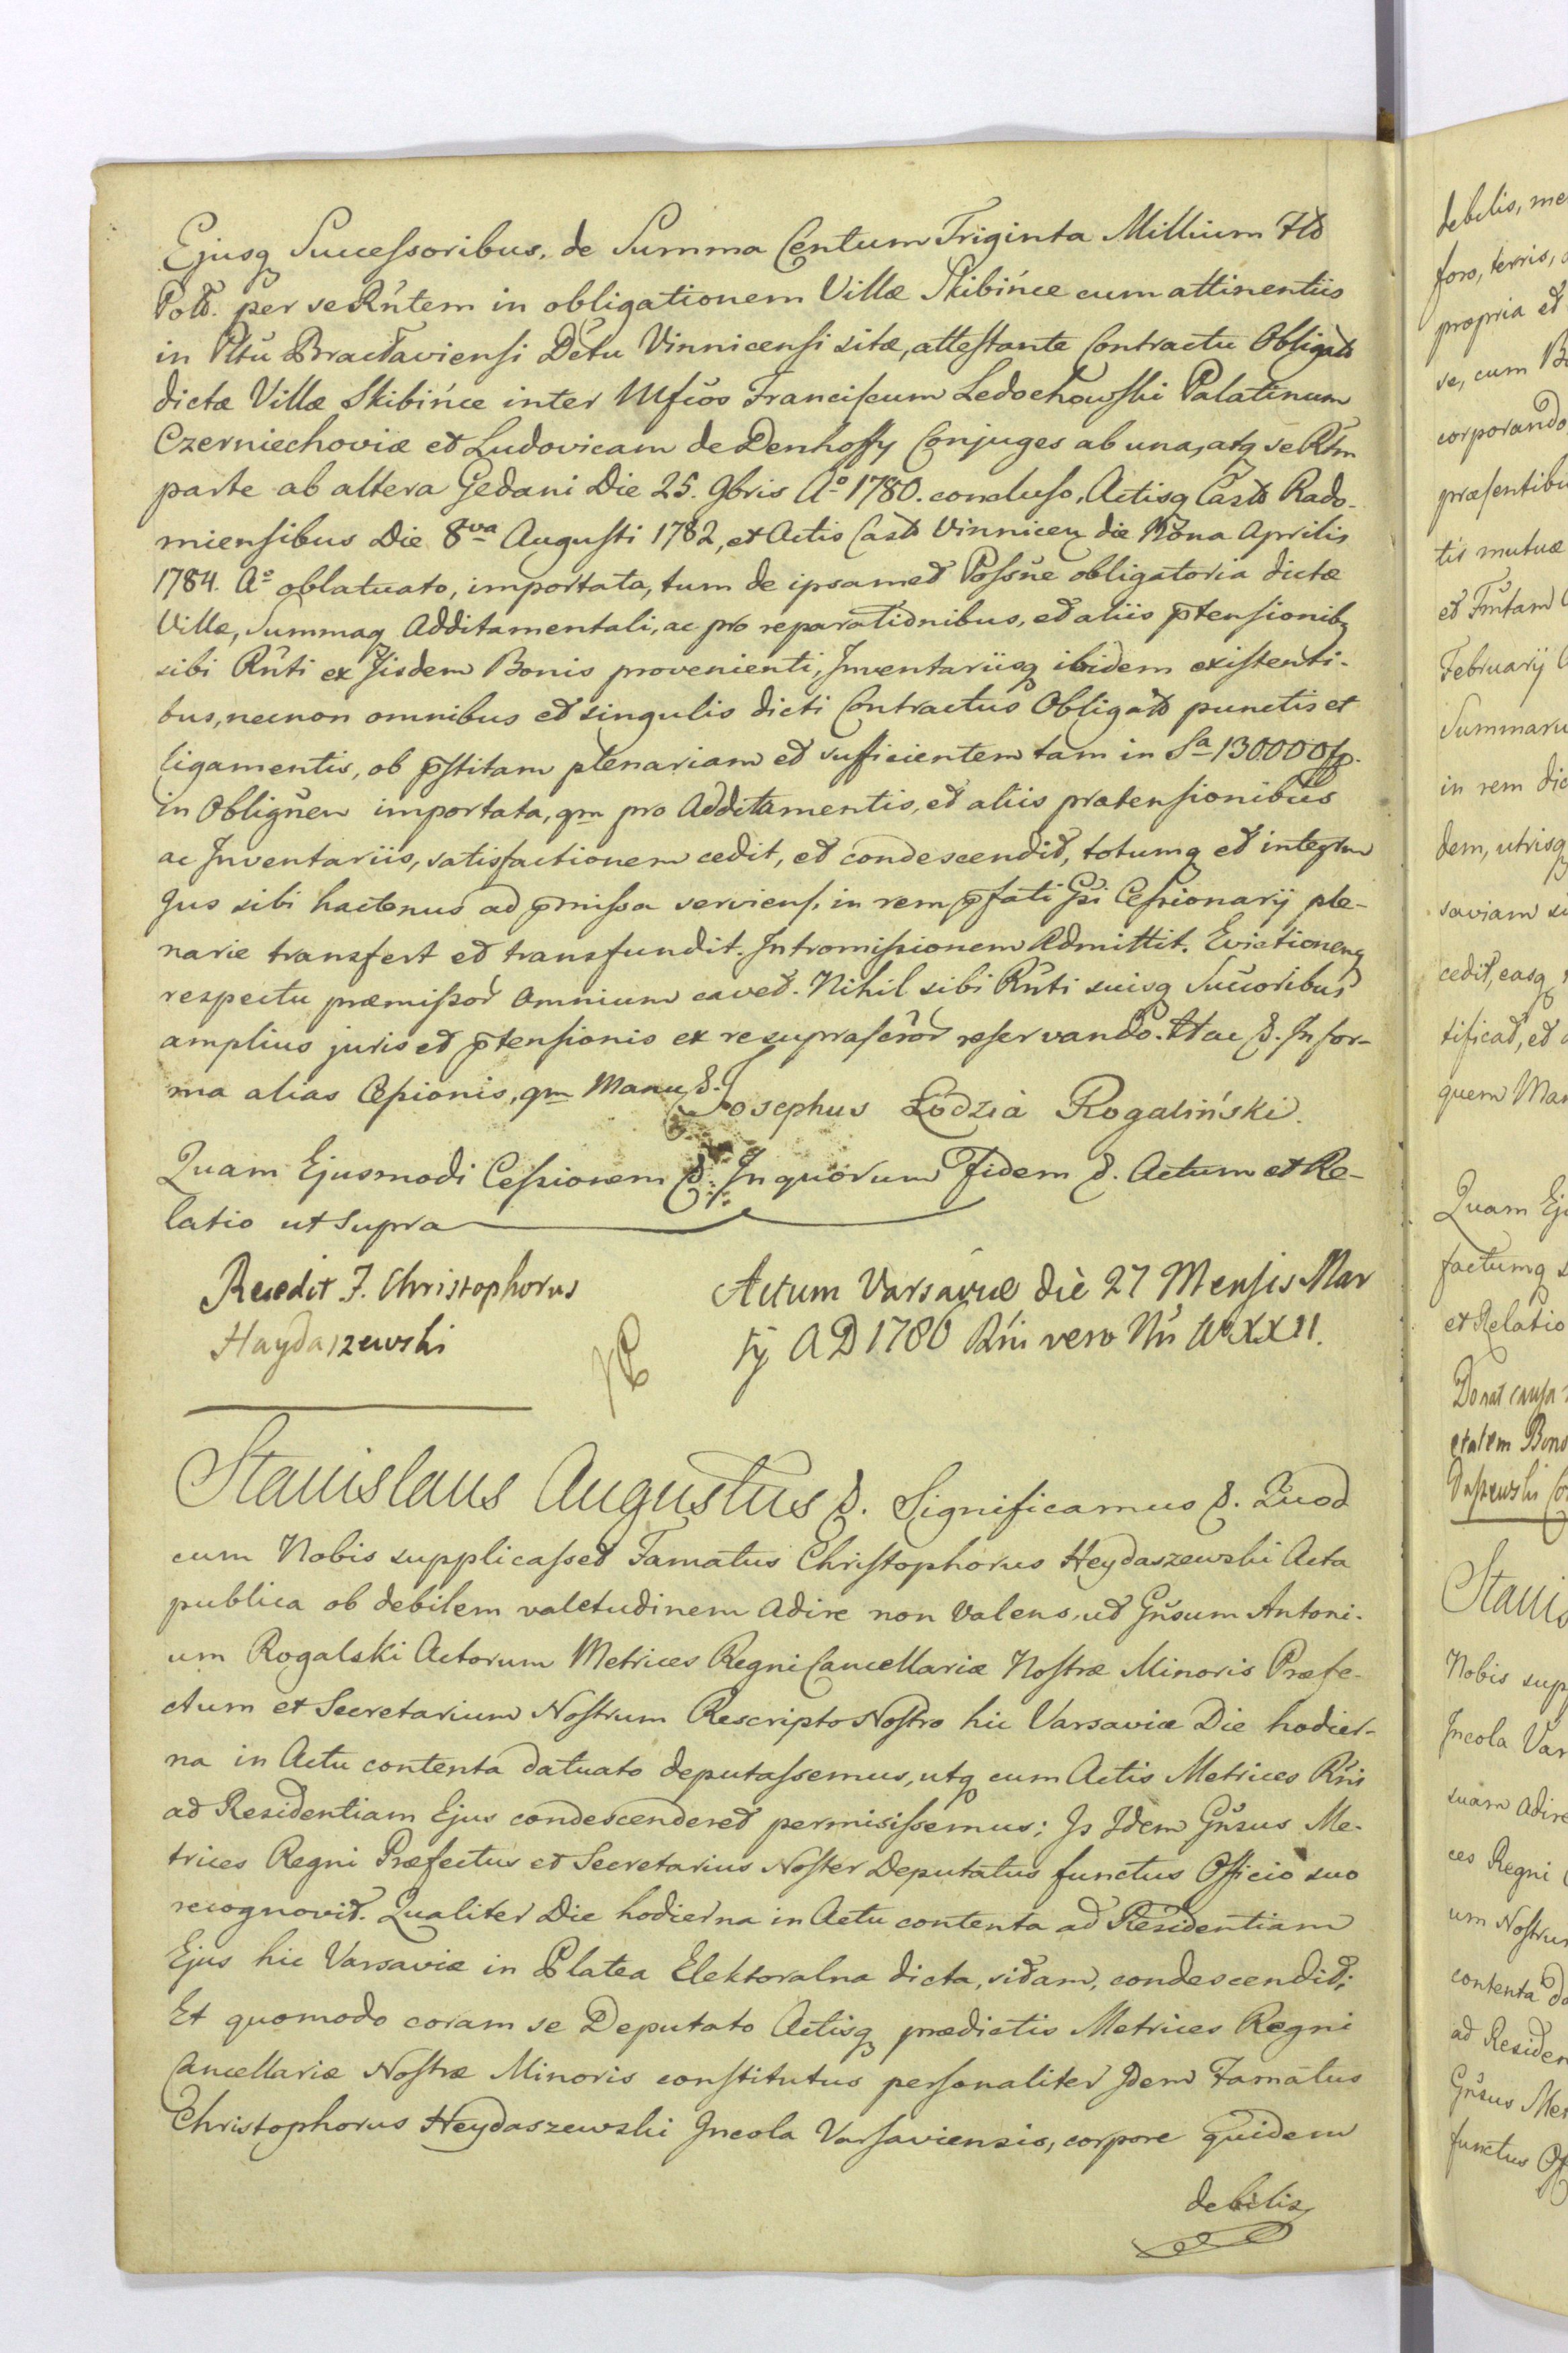 Ejusq Successoribus, de Summa Centum Triginta Millium Fld
Pold. per se Rńtem in obligationem Villæ Skibińce cum attinentiis
in Pltu Bracłaviensi Dctu Vinnicensi sitæ, attestante Contractu Obligatd
dictæ Villæ Skibińce inter Mfcos Franciscum Ledochowski Palatinum
Czerniechoviæ et Ludovicam de Denhoffy Conjuges ab una, atq se Rtm
parte ab altera Gedani Die 25. 9bris Aº 1780. concluso, Actisq Castd Rado-
miensibus Die 8va Augusti 1782, et Actis Castd Vinnicen die Nona Aprilis
1784. Aº oblatuato, importata, tum de ipsamet Possne obligatoria dictæ
Villæ, Summaq Additamentali, ac pro reparationibus, et aliis ptensionibq
sibi Rńti ex Iisdem Bonis provenienti, Inventariisq ibidem existenti-
bus, necnon omnibus et singulis dicti Contractus Obligatd punctis et
ligamentis, ob pstitam plenariam et sufficientem tam in Sa 130000 fp.
in Oblignen importata, qm pro Additamentis, et aliis prætensionibus
ac Inventariis, satisfactionem cedit, et condescendit, totumq et integrum
Jus sibi hactenus ad pmissa serviens, in rem pfati Gsi Cessionarij ple-
narie transfert et transfundit. Intromissionem Admittit. Evictionemq
respectu præmissor Omnium cavet. Nihil sibi Rńti suisq Sucoribus
amplius juris et ptensionis ex re suprascror reservando. Hac &. In for-
ma alias Cessionis, qm Manu &. Josephus Łodzia Rogaliński.
Quam Ejusmodi Cessionem &. In quorum Fidem &. Actum et Re-
latio ut supra
Recedit F. Christophorus
Haydaszewski
Actum Varsaviæ die 27 Mensis Mar
tij A D 1786 Rńi vero Nń Aº XXII.
Stanislaus Augustus &. Significamus &. Quod
cum Nobis supplicasset Famatus Christophorus Heydaszewski Acta
publica ob debilem valetudinem Adire non Valens, ut Gnsum Antoni-
um Rogalski Actorum Metrices Regni Cancellariæ Nostræ Minoris Præfe-
ctum et Secretarium Nostrum Rescripto Nostro hic Varsaviæ Die hodier-
na in Actu contenta datuato deputassemus, utq cum Actis Metrices Rńi
ad Residentiam Ejus condescenderet permisissemus; Is Idem Gnsus Me-
trices Regni Præfectus et Secretarius Noster Deputatus functus Officio suo
recognovit. Qualiter Die hodierna in Actu contenta ad Residentiam
Ejus hic Varsaviæ in Platea Elektoralna dicta, sitam, condescendit;
Et quomodo coram se Deputato Actisq prædictis Metrices Regni
Cancellariæ Nostræ Minoris constitutus personaliter Idem Famatus
Christophorus Heydaszewski Incola Varsaviensis, corpore quidem
debilis,
debilis, me
foro, terris,
propria et
se, cum
corporando
præsentibu
tis mutuæ
et Frutam
Februarij
Summaru
in rem dic
dem, utrisq
saviam
cedit, easq
tificat, et
quem Man
Quam Eju
factumq
et Relatio
Donat causa
Bono
Stanis
Nobis sup
Incola Var
suam Adire
ces Regni
um Nostrum
contenta da
ad Residen
Gnsus Met
functus Of